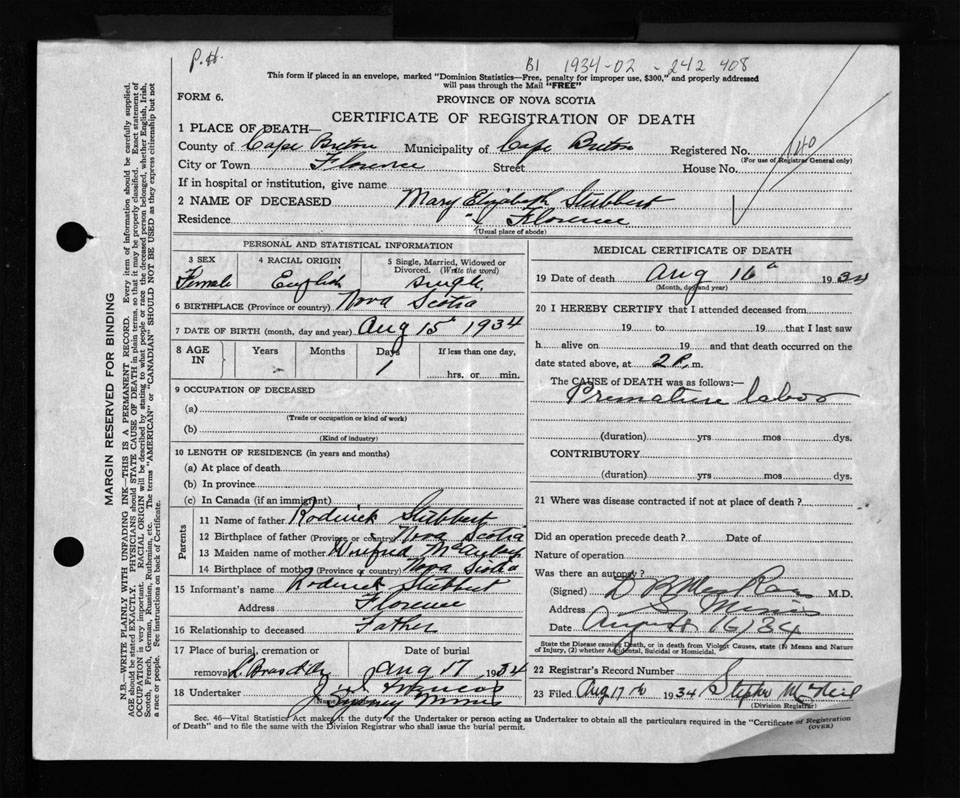 P.H.
B1 1934-02-242408
This form if placed in an envelope, marked "Dominion Statistics—Free, penalty for improper use, $300," and properly addressed
will pass through the Mail "FREE"
FORM 6.
PROVINCE OF NOVA SCOTIA
CERTIFICATE OF REGISTRATION OF DEATH
1 PLACE OF DEATH—
County of Cape Breton Municipality of Cape Breton Registered No.
(For use of Registrar General only)
City or Town Florence Street House No.
If in hospital or institution, give name
2 NAME OF DECEASED Mary Elizabeth Stubbert
Residence " Florence
(Usual place of abode)
MARGIN RESERVED FOR BINDING
N.B.—WRITE PLAINLY WITH UNFADING INK—THIS IS A PERMANENT RECORD. Every item of information should be carefully supplied.
AGE should be stated EXACTLY. PHYSICIANS should STATE CAUSE OF DEATH in plain terms, so that it may be properly classified. Exact statement of
OCCUPATION is very important. RACIAL ORIGIN will be described by stating to what people or race the deceased person belonged, whether English, Irish,
Scotch, French, German, Russian, Ruthenian, etc. The terms "AMERICAN" or "CANADIAN" SHOULD NOT BE USED as they express citizenship but not
a race or people. See instructions on back of Certificate.
PERSONAL AND STATISTICAL INFORMATION
3 SEX
Female
4 RACIAL ORIGIN
English
5 Single, Married, Widowed or
Divorced. (Write the word)
single
6 BIRTHPLACE (Province or country) Nova Scotia
7 DATE OF BIRTH (month, day and year) Aug 15 1934
8 AGE IN
Years Months Days If less than one day,
1 hrs. or min.
9 OCCUPATION OF DECEASED
(a)
(Trade or occupation or kind of work)
(b)
(Kind of industry)
10 LENGTH OF RESIDENCE (in years and months)
(a) At place of death
(b) In province
(c) In Canada (if an immigrant)
Parents
11 Name of father Roderick Stubbert
12 Birthplace of father (Province or country) Nova Scotia
13 Maiden name of mother Winifred
14 Birthplace of mother (Province or country) Nova Scotia
15 Informant's name Roderick Stubbert
Address Florence
16 Relationship to deceased Father
17 Place of burial, cremation or Date of burial
removal Aug 17 1934
18 Undertaker
Sydney Mines
MEDICAL CERTIFICATE OF DEATH
19 Date of death Aug 16 1934
(Month, day and year)
20 I HEREBY CERTIFY that I attended deceased from
19 to 19 that I last saw
h alive on 19 and that death occurred on the
date stated above, at 2 P. m.
The CAUSE of DEATH was as follows:—
Premature labor
(duration) yrs mos dys.
CONTRIBUTORY
(duration) yrs mos dys.
21 Where was disease contracted if not at place of death?
Did an operation precede death? Date of
Nature of operation
Was there an autopsy?
(Signed) M.D.
Address S. Mines
Date August 16/34
State the Disease causing Death, or in death from Violent Causes, state (1) Means and Nature
of Injury, (2) whether Accidental, Suicidal or Homicidal.
22 Registrar's Record Number
23 Filed Aug 17th 1934 Stephen McNeil
(Division Registrar)
Sec. 46—Vital Statistics Act makes it the duty of the Undertaker or person acting as Undertaker to obtain all the particulars required in the "Certificate of Registration
of Death" and to file the same with the Division Registrar who shall issue the burial permit.
(OVER)